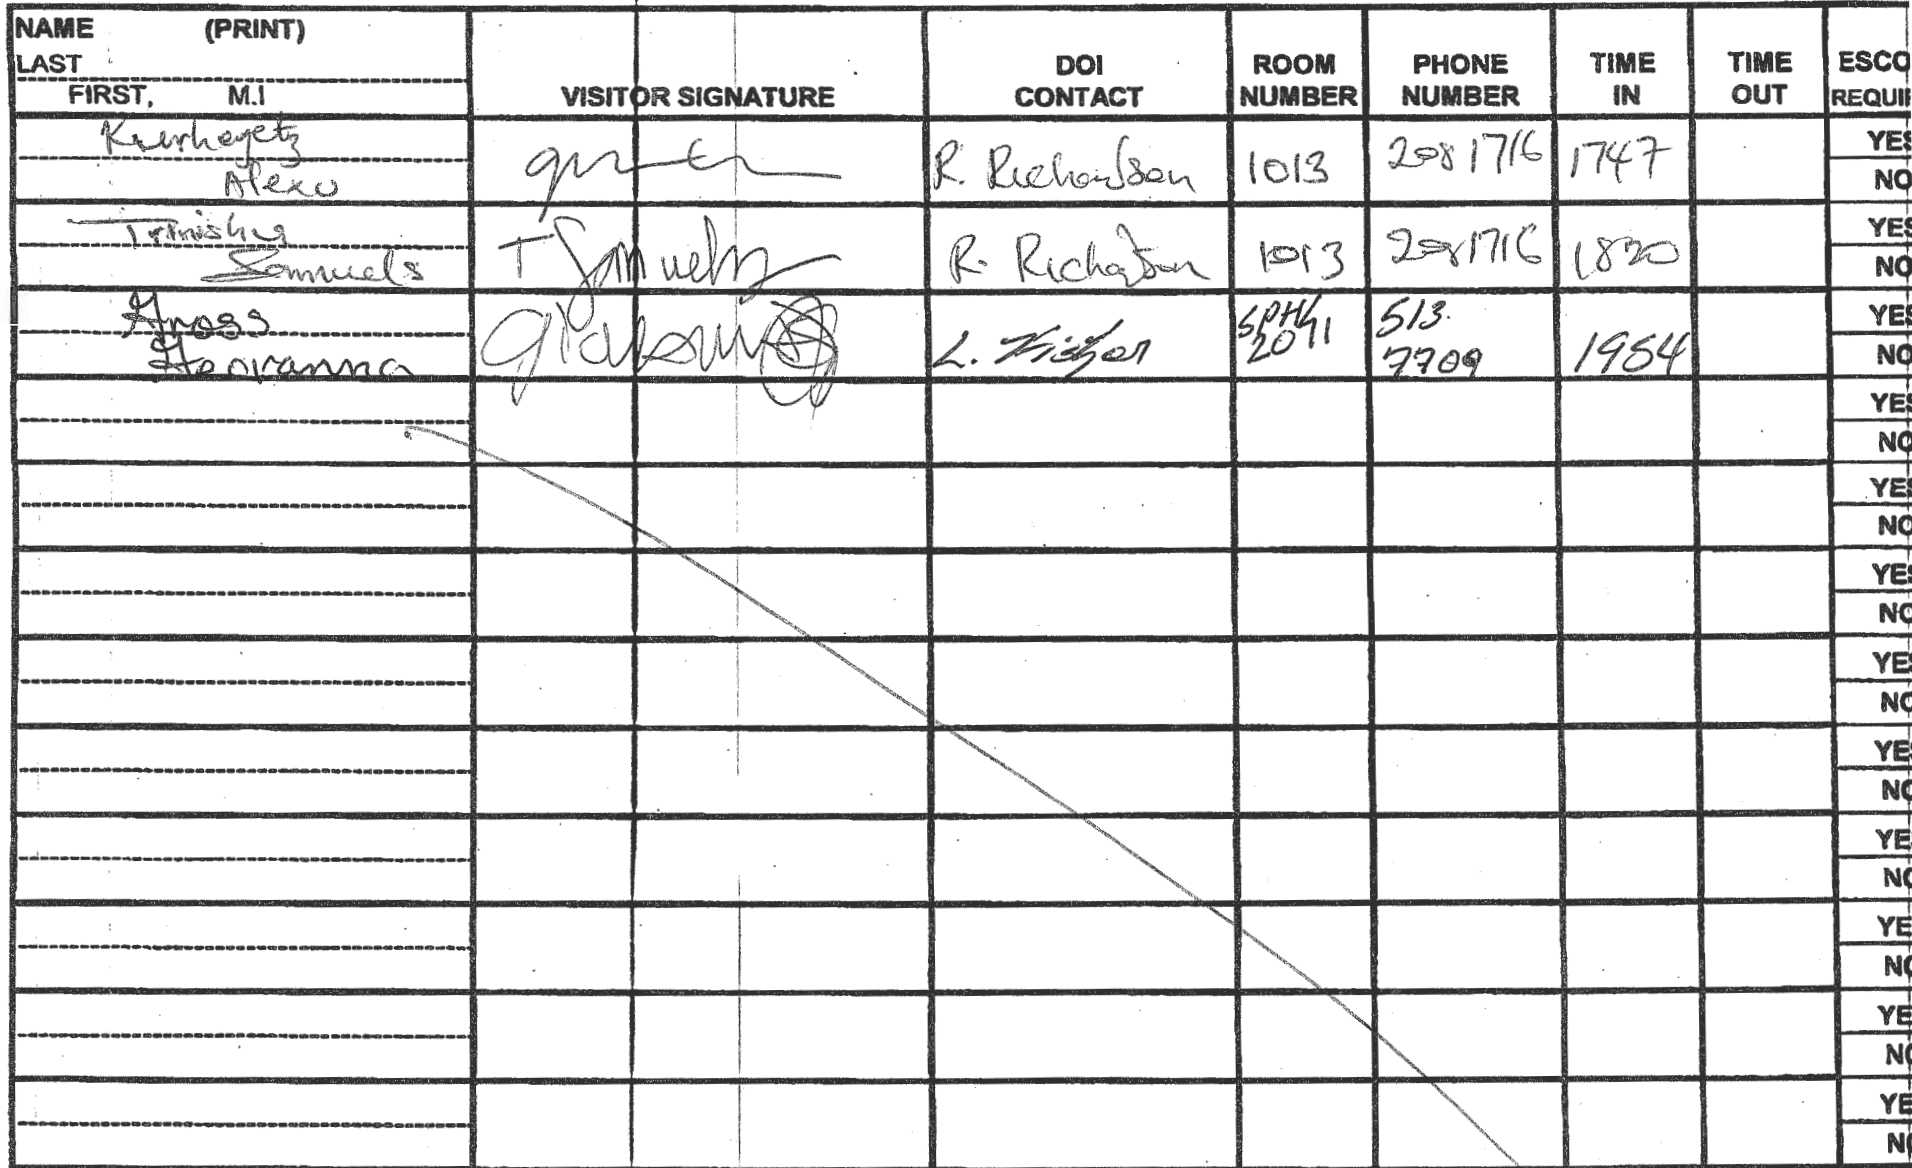 NAME (PRINT)
LAST
FIRST, M.I
VISITOR SIGNATURE
DOI CONTACT
ROOM NUMBER
PHONE NUMBER
TIME IN
TIME OUT
ESCO
REQUI
R. Richardson 1013 208 1716 1747
YES
NO
Samuels T Samuels R. Richardson 1013 208 1716 1820
YES
NO
Gross 513
L. 2041 7709 1954
YES
NO
YES
NO
YES
NO
YES
NO
YES
NO
YES
NO
YE
NO
YE
NO
YE
NO
YE
NO